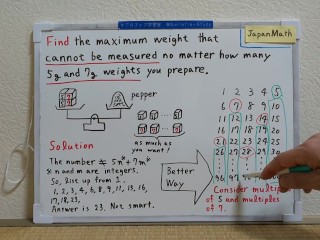 JapanMath
Find the maximum weight that
cannot be measured no matter how many
5g and 7g weights you prepare.
pepper
as much as
you want!
Solution
The number ≠ 5m※+7m※
※ n and m are integers.
So, list up from 1.
1, 2, 3, 4, 6, 8, 9, 11, 13, 16,
17, 18, 23,
Answer is 23. Not smart.
Better
Way
1 2 3 4 5
6 7 8 9 10
11 12 13 14 15
16 17 18 19 20
21 22 23 24 25
26 27 28
96 97
Consider multip
of 5 and multiples
of 7.